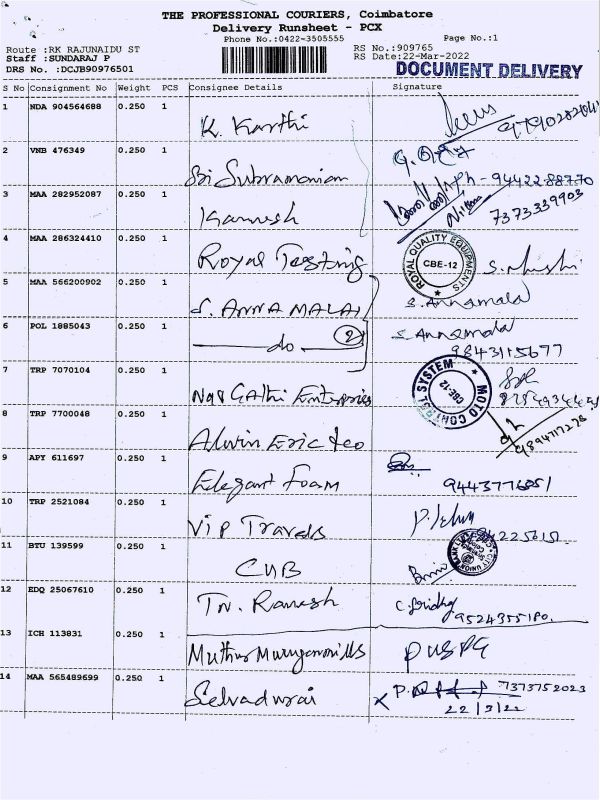 THE PROFESSIONAL COURIERS, Coimbatore
Delivery Runsheet - PCX
Phone No.:0422-3505555 Page No.:1
Route :RK RAJUNAIDU ST RS No.:909765
Staff :SUNDARAJ P RS Date:22-Mar-2022
DRS No. :DCJB90976501 DOCUMENT DELIVERY
S No Consignment No Weight PCS Consignee Details Signature
1 NDA 904564688 0.250 1 K. Karthi
2 VNB 476349 0.250 1 Sri Subramaniam Ph - 9442288770
3 MAA 282952087 0.250 1 Kamesh 7373339903
4 MAA 286324410 0.250 1 Royal Testing ROYAL QUALITY EQUIPMENTS CBE-12
5 MAA 566200902 0.250 1 S. ANNAMALAI S. Annamalai
6 POL 1885043 0.250 1 do 2 S. Annamalai 9843115677
7 TRP 7070104 0.250 1 Enterprises MOTO CONTROL SYSTEM CBE-12
8 TRP 7700048 0.250 1 Alwin Eric & co 9894717228
9 APY 611697 0.250 1 Elegant Foam
10 TRP 2521084 0.250 1 Vip Travels
11 BTU 139599 0.250 1 CUB
12 EDQ 25067610 0.250 1 TN. Ramesh 9524355180.
13 ICH 113831 0.250 1
14 MAA 565489699 0.250 1 Selvadurai X 7373752023
22/3/22